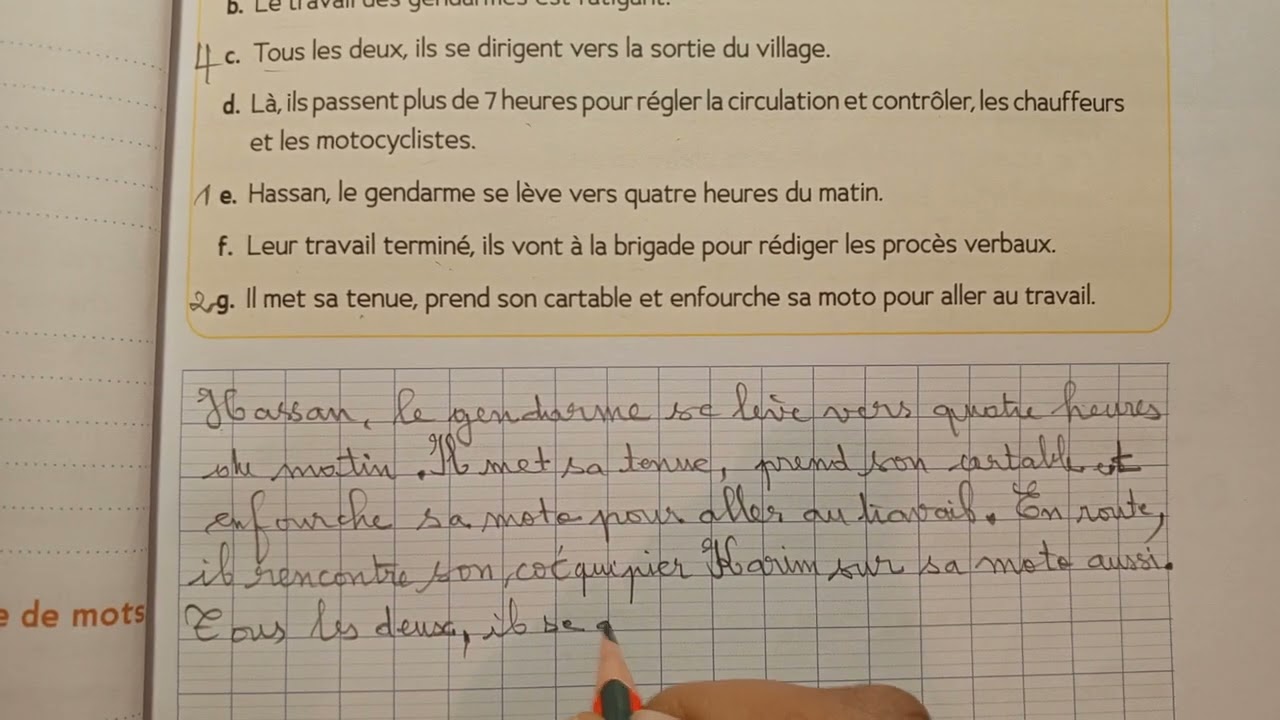 b. Le travail des gendarmes est fatigant.
4 c. Tous les deux, ils se dirigent vers la sortie du village.
d. Là, ils passent plus de 7 heures pour régler la circulation et contrôler, les chauffeurs
et les motocyclistes.
1 e. Hassan, le gendarme se lève vers quatre heures du matin.
f. Leur travail terminé, ils vont à la brigade pour rédiger les procès verbaux.
2 g. Il met sa tenue, prend son cartable et enfourche sa moto pour aller au travail.
Hassan, le gendarme se lève vers quatre heures
du matin. Il met sa tenue, prend son cartable et
enfourche sa moto pour aller au travail. En route,
il rencontre son coéquipier Karim sur sa moto aussi.
e de mots
Tous les deux, il se